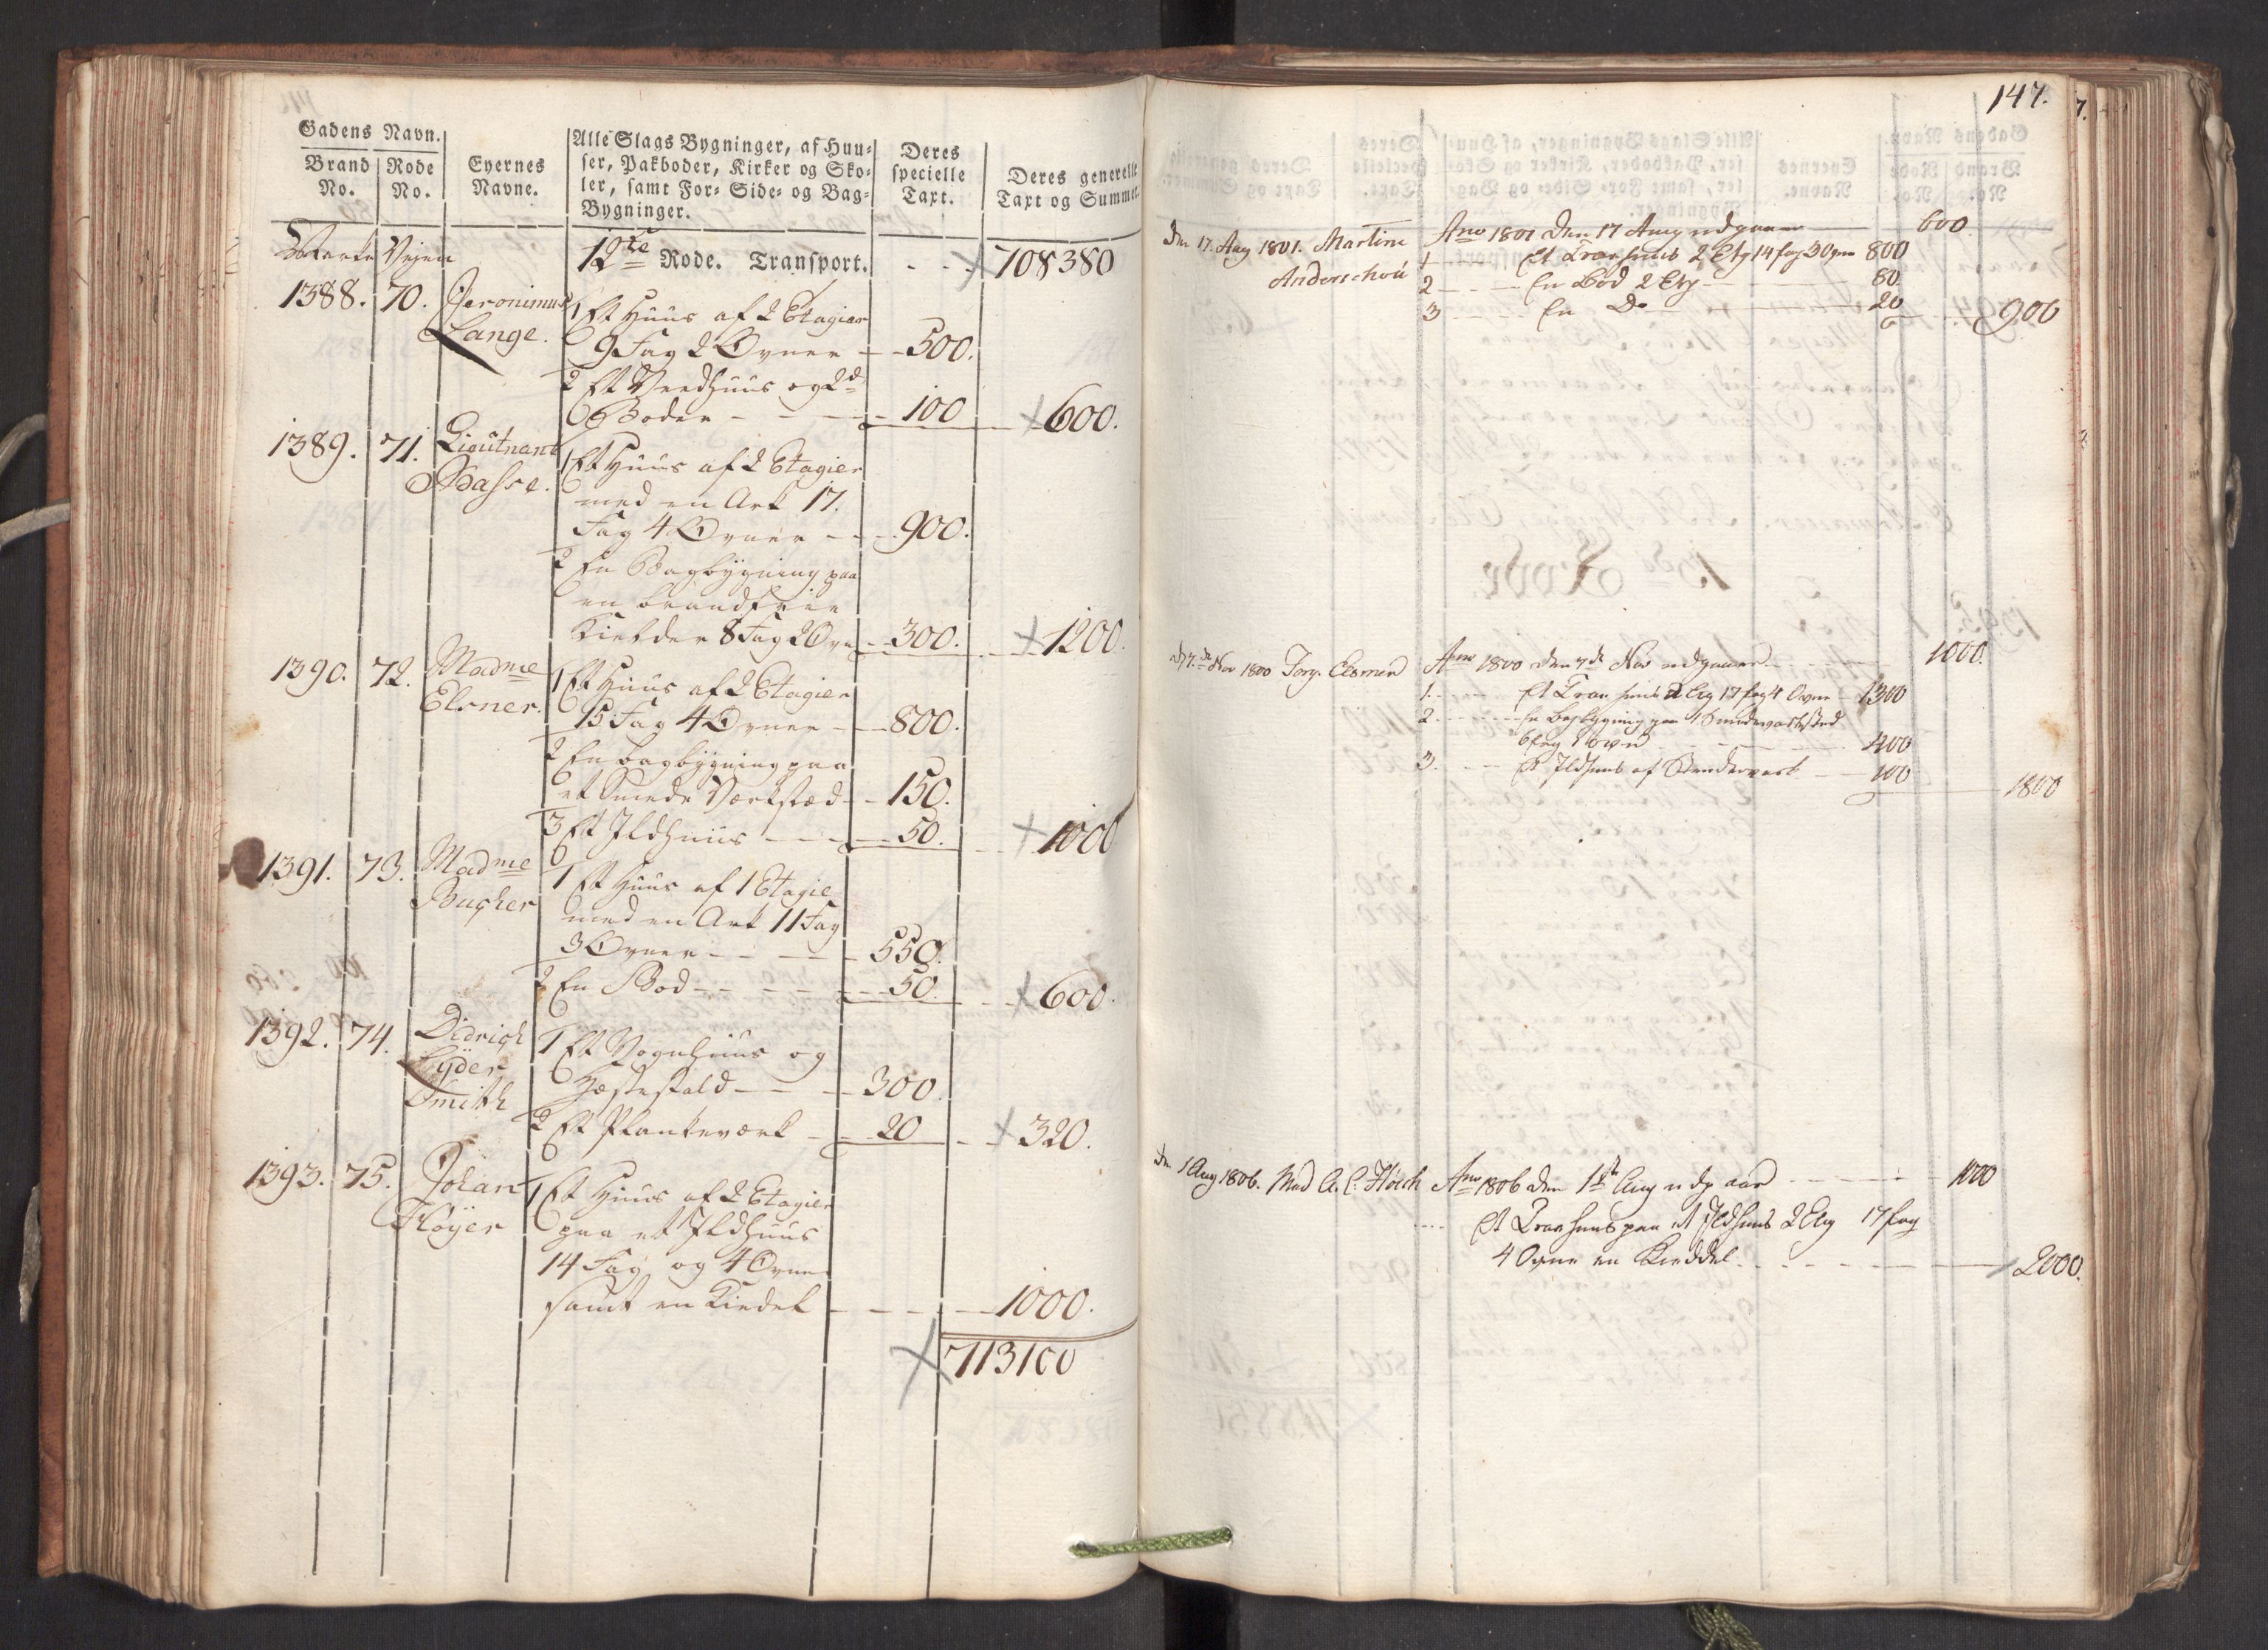 Gadens Navn.
Brand No.
Rode No.
Eyernes Navne.
Alle Slags Bygninger, af Huu-
ser, Pakboder, Kirker og Sko-
ler, samt For- Side- og Bag-
Bygninger.
Deres
specielle
Taxt.
Deres generelle
Taxt og Summer.
Veien
12te Rode. Transport. 708380
1388. 70. Jeronimus
Lange.
1 Et Huus af 2 Etagier
9 Fag 2 Ovner 500.
2 Et Vedhuus og 2de
Boder 100 600.
1389. 71. Lieutnant
Basse.
1 Et Huus af 2 Etagier
med en Ark 17.
Fag 4 Ovner 900.
2 En Bagbygning paa
en brandfrie
Kielder 8 Fag 2 Ovn 300. 1200.
1390. 72. Madme
Elsner.
1 Et Huus af 2 Etagier
15 Fag 4 Ovner 800.
2 En bagbygning paa
et Smede Værksted 150.
3 Et Ildhuus 50. 1000
1391. 73. Madme
Bugher
1 Et Huus af 1 Etagie
med en Ark 11 Fag
3 Ovner 550.
2 En Bod 50. 600.
1392. 74. Didrich
Lyder
Smith
1 Et Vognhuus og
Hestestald 300
2 Et Plankeværk 20 320.
1393. 75. Johan
Fløyer
1 Et Huus af 2 Etagier
paa et Ildhuus
14 Fag og 4 Ovne
samt en Kiedel 1000.
713100
147.
Den 17. Aug 1801. Martine
Anderschou
Ano 1801 den 17 Aug udgaaer 600
1 Et Træehuus 2 Etg 14 fag 3 Ovne 800
2 En Bod 2 Etg 80
3 En Do 20 900
d 7de Nov 1800 Jørg. Elsmer
Ano 1800 den 7de Nov udgaaer 1000.
1. Et Træe huus 2 Etg 17 fag 4 Ovne 1300
2. En bagbygning paa
6 fag 1 Ovn 400
3. Et Ildhuus af Bindeværk 100 1800
Den 1 Aug 1806. Mad A. C. Fløich
Ano 1806 den 1ste Aug udgaaer 1000
Et Træe huus paa et Ildhuus 2 Etg 17 fag
4 Ovne en Kieddel 2000.